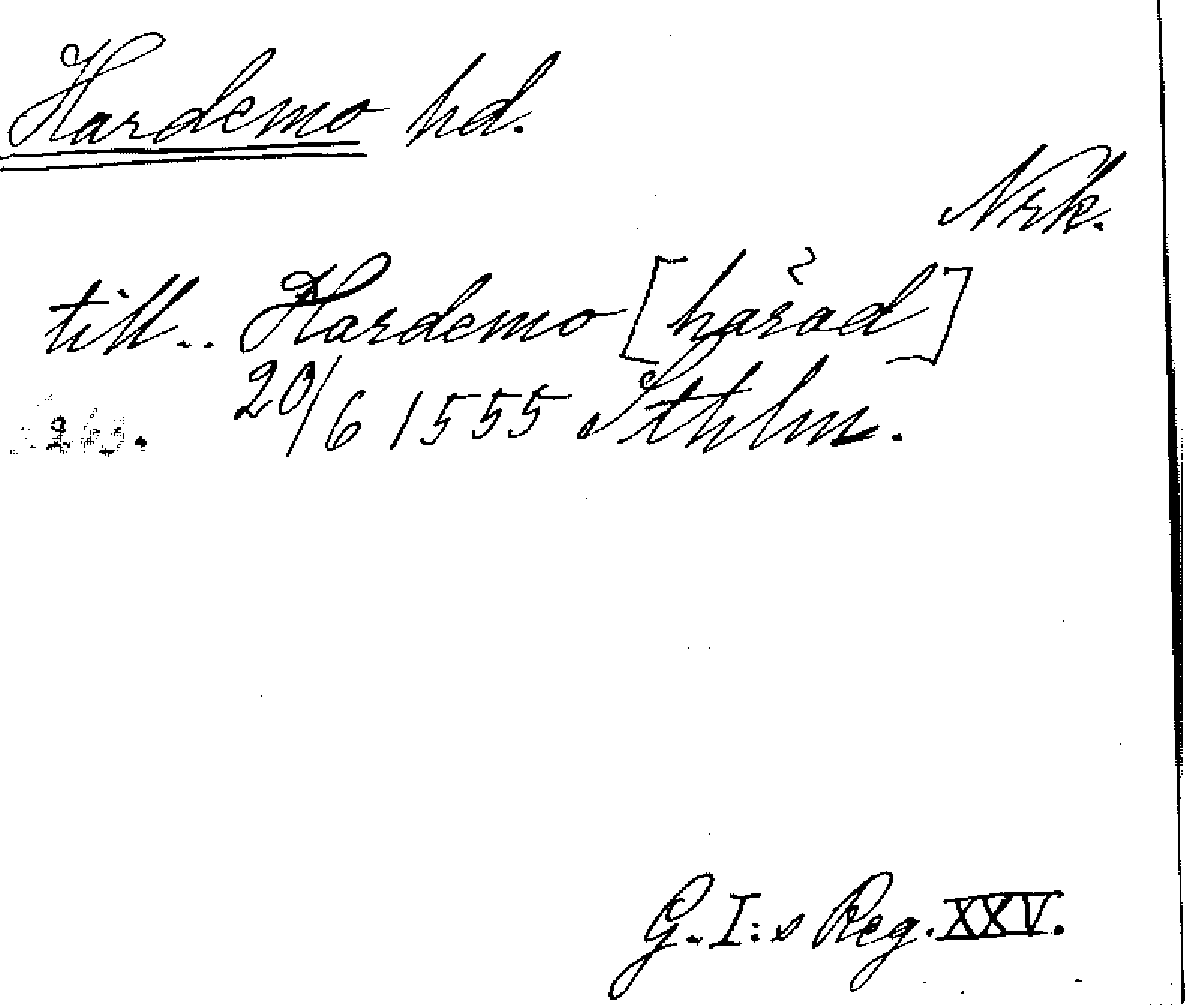 Hardemo hd.
Nrk.
till.. Hardemo [hårad]
20/6 1555 Sthlm.
G. I:s Reg. XXV.